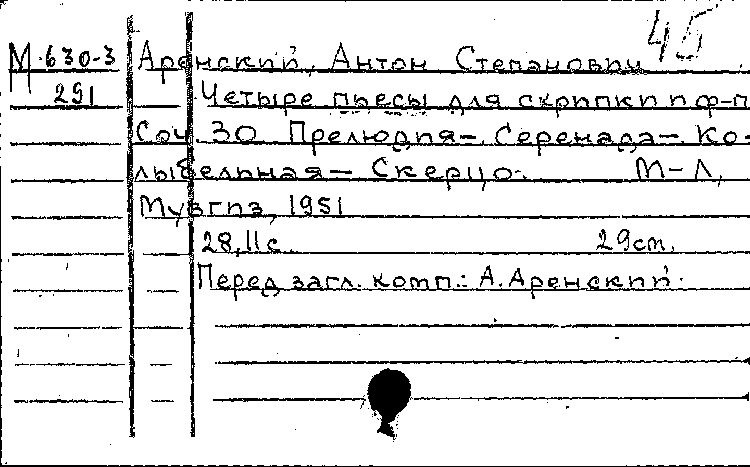 45
М-630-3 Аренский, Антон Степанович
291 Четыре пьесы для скрипки и ф-п
Соч. 30 Прелюдия – Серенада – Ко-
лыбельная – Скерцо. М-Л,
Музгиз, 1951
28, 11 с. 29 cm.
Перед загл. комп.: А. Аренский.